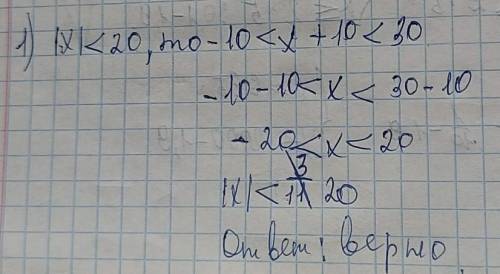 1) |x| < 20, то -10 < x + 10 < 30
-10 - 10 < x < 30 - 10
-20 < x < 20
|x| < 20
Ответ: верно.